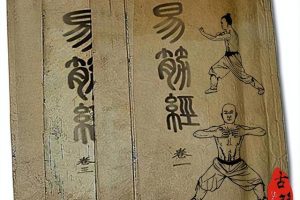 易筋經
卷一
易筋經
卷三
古